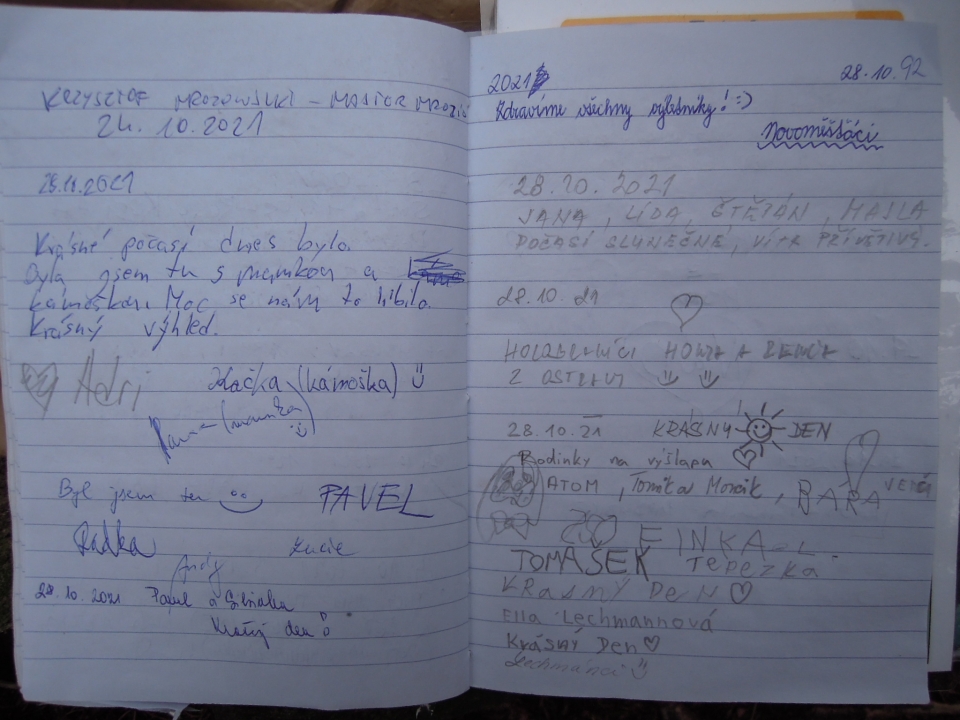 KRZYSZTOF MROZOWSKI - MASTOR
24.10.2021
28.11.2021
Krásné počasí dnes bylo.
Byla jsem tu s mamkou a
kámoškou. Moc se nám to líbilo.
Krásný výhled.
Adri
Kačka (kámoška)
(mamka)
Byl jsem tu PAVEL
Radka
Lucie
Andy
28.10.2021 Pavel a
Krásný den
2021
28.10.
Zdravíme všechny výletníky! :-)
Novoměšťáci
28.10.2021
JANA, LÍDA, ŠTĚPÁN, MAJLA
POČASÍ SLUNEČNÉ, VÍTR PŘÍVĚTIVÝ.
28.10.21
HONZA A
Z OSTRAVY
28.10.21 KRÁSNÝ DEN
Rodinky na výšlapu
ATOM, Tomík a BÁRA
EINKA
TOMÁŠEK
KRÁSNÝ DEN
Ella Lechmannová
Krásný Den
Lechmánci